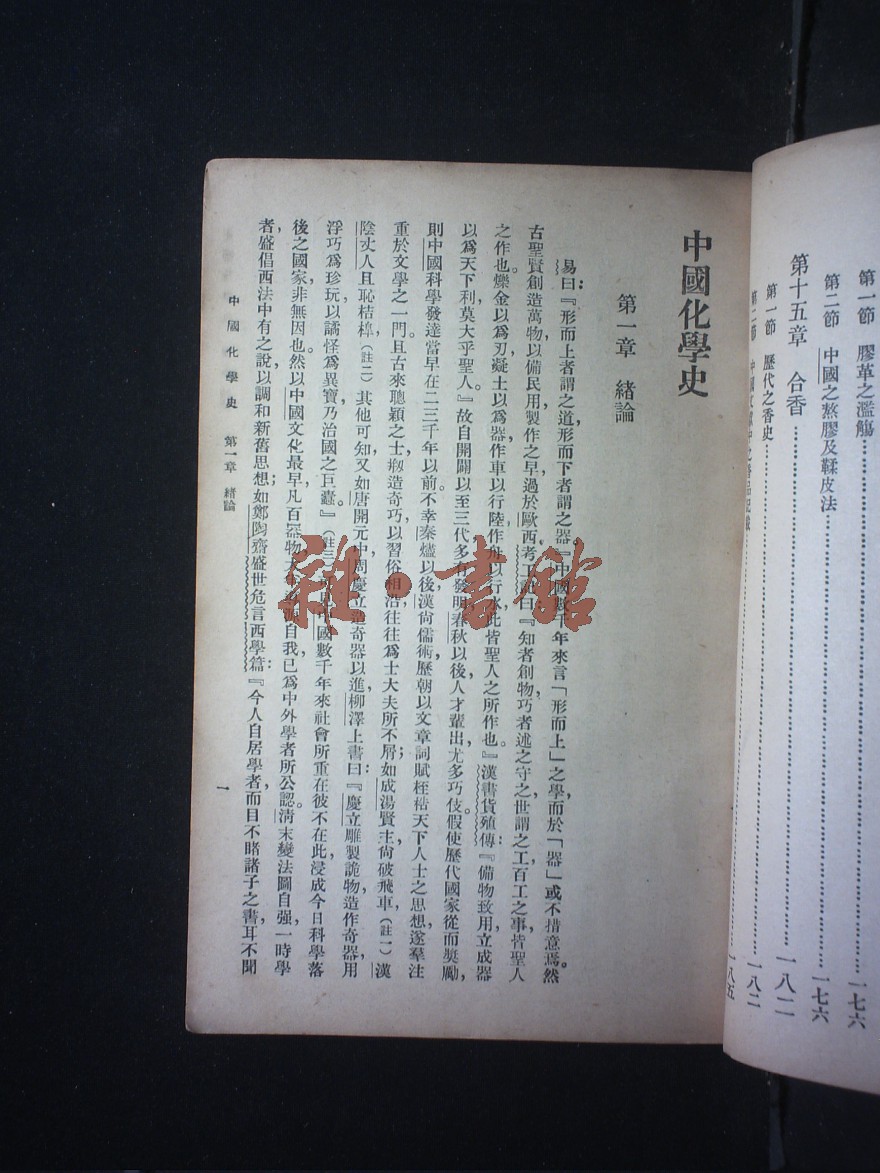 第一節 膠革之濫觴……一七六
第二節 中國之熬膠及鞣皮法……一七六
第十五章 合香……一八二
第一節 歷代之香史……一八二
一八五
中國化學史
第一章 緒論
易曰:『形而上者謂之道,形而下者謂之器。』中國數千年來言「形而上」之學,而於「器」或不措意焉。然
古聖賢創造萬物以備民用,製作之早,過於歐西,考工記曰:『知者創物,巧者述之守之,世謂之工,百工之事,皆聖人
之作也。爍金以爲刃,凝土以爲器,作車以行陸,作舟以行水,此皆聖人之所作也。』漢書貨殖傳:『備物致用,立成器
以爲天下利,莫大乎聖人。』故自開闢以至三代,多有發明,春秋以後,人才輩出,尤多巧伎。假使歷代國家從而獎勵,
則中國科學發達,當早在二三千年以前。不幸秦燼以後,漢尙儒術,歷朝以文章詞賦桎梏天下人士之思想,遂羣注
重於文學之一門,且古來聰穎之士,剏造奇巧,以習俗相沿,往往爲士大夫所不屑;如成湯賢主,尙破飛車,(註一)漢
陰丈人且恥桔槔,(註二)其他可知。又如唐開元中,周慶立造奇器以進,柳澤上書曰:『慶立雕製詭物,造作奇器,用
浮巧爲珍玩,以譎怪爲異寶,乃治國之巨蠹。』(註三)中國數千年來社會所重在彼不在此,浸成今日科學落
後之國家,非無因也。然以中國文化最早,凡百器物,自我,已爲中外學者所公認。淸末變法圖自强,一時學
者,盛倡西法中有之說,以調和新舊思想;如鄭陶齋盛世危言西學篇:『今人自居學者,而目不睹諸子之書,耳不聞
中國化學史 第一章 緒論
一
雜·書館